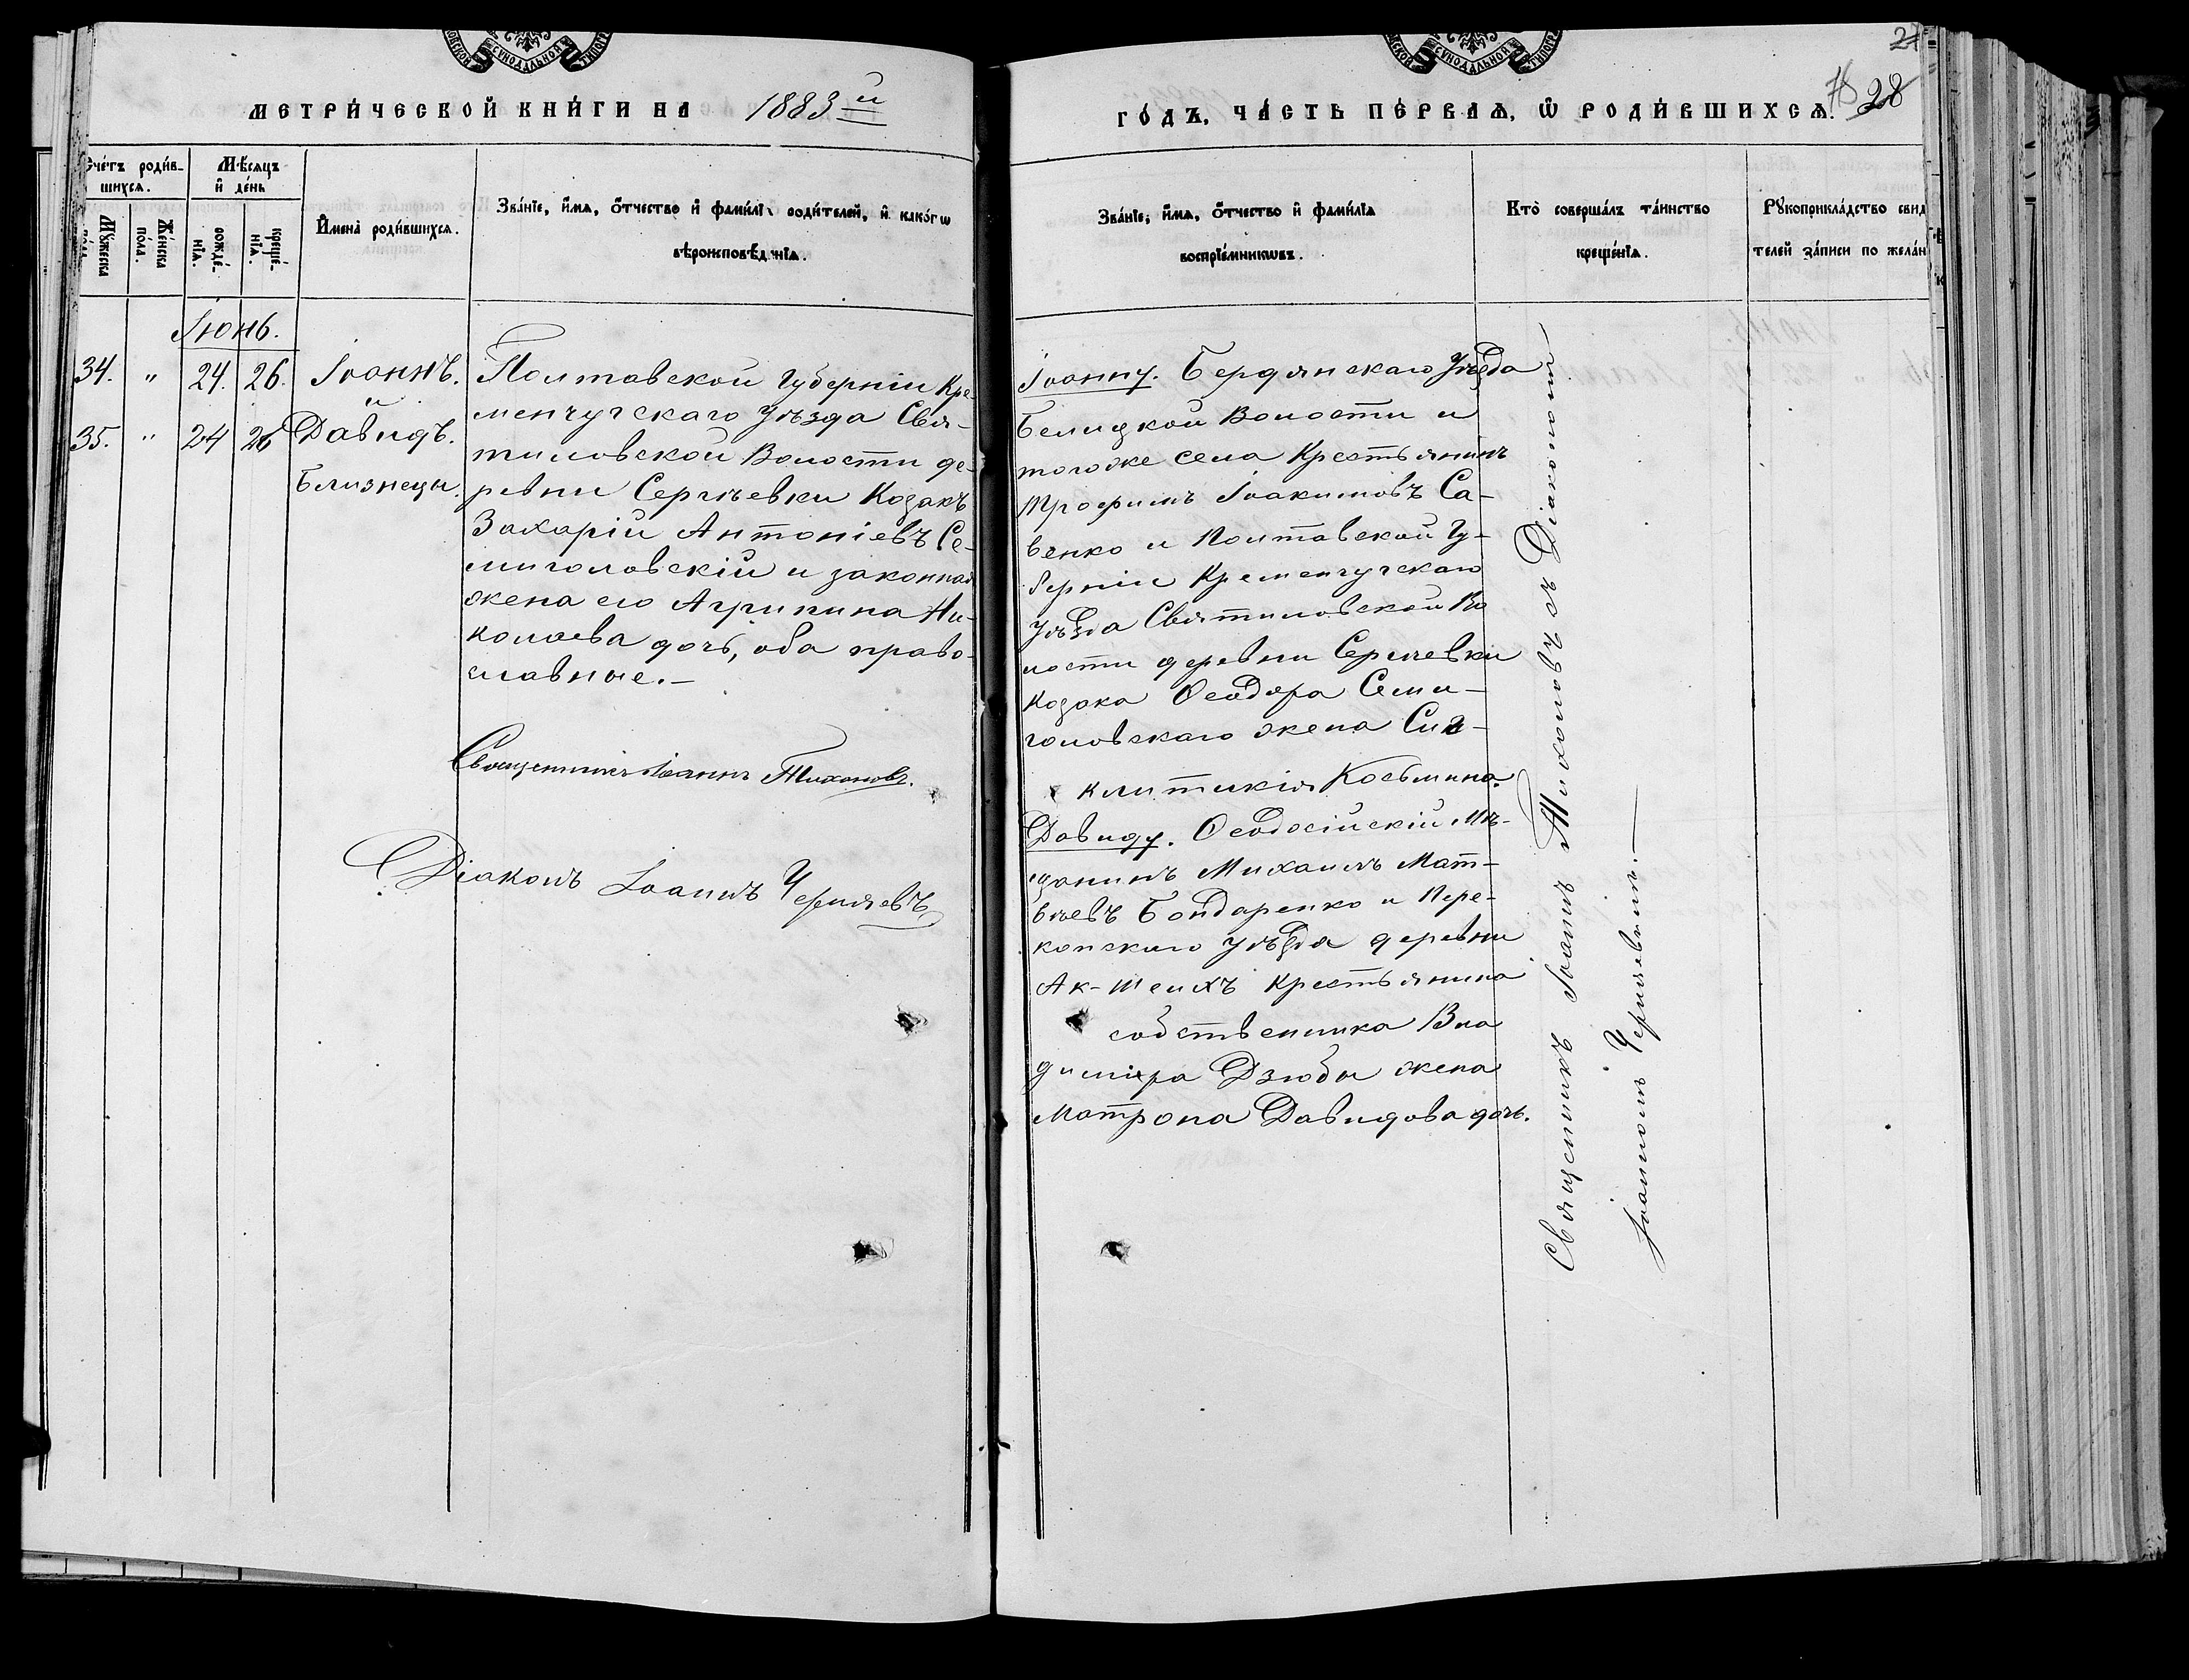 СѴНОДАЛЬНОЙ
МЕТРИ́ЧЕСКОЙ КНИ́ГИ НА 1883 й
Сче́тъ роди́в-
шихсѧ.
Мѣ́сѧцъ
и҆ де́нь
Мꙋ́жеска
по́ла.
Же́нска
по́ла.
рожде́-
нїѧ.
креще́-
нїѧ.
И҆мена̀ роди́вшихсѧ.
Зва́нїе, и҆́мѧ, ѻ҆́тчество и҆ фами́лїѧ родителей, и҆ како́гѡ
вѣроисповѣ́данїѧ.
Іюнь.
34. " 24. 26. Іоаннъ.
и
35. " 24 26 Давидъ.
Близнецы.
Полтавской Губерніи Кре-
менчугскаго Уѣзда Свя-
тиловской Волости де-
ревни Сергѣевки Козакъ
Захарій Антоніевъ Се-
миголовскій и законная
жена его Агрипина Ни-
колаева дочь, оба право-
славные.-
Священникъ Іоаннъ Тихоновъ.
Діаконъ Іоаннъ Чернявъ
27
28
СѴНОДАЛЬНОЙ
ГО́ДЪ, ЧА́СТЬ ПЕ́РВАѦ, Ѽ РОДИ́ВШИХСѦ.
Зва́нїе, и҆́мѧ, ѻ҆́тчество и҆ фами́лїѧ
воспрїе́мникѡвъ.
Кто̀ соверша́лъ та́инство
креще́нїѧ.
Рꙋкоприкла́дство свид
телей за́писи по жела́н
Іоанну. Бердянскаго Уѣзда
Белицкой Волости и
тогоже села Крестьянинъ
Трофимъ Іоакимовъ Са-
венко и Полтавской Гу-
берніи Кременчугскаго
Уѣзда Святиловской Во
лости деревни Сергѣевки
Козака Ѳеодора Семи-
головскаго жена Син-
клитикія Косьмина.
Давиду. Ѳеодосійскій мѣ-
щанинъ Михаилъ Мат-
вѣевъ Бондаренко и Пере-
копскаго Уѣзда деревни
Ак-Шеихъ Крестьянина
собственника Вла
димира Дзюбы жена
Матрона Давидова дочь.
Священникъ Іоаннъ Тихоновъ съ Діакономъ
Іоанномъ Чернявымъ.-